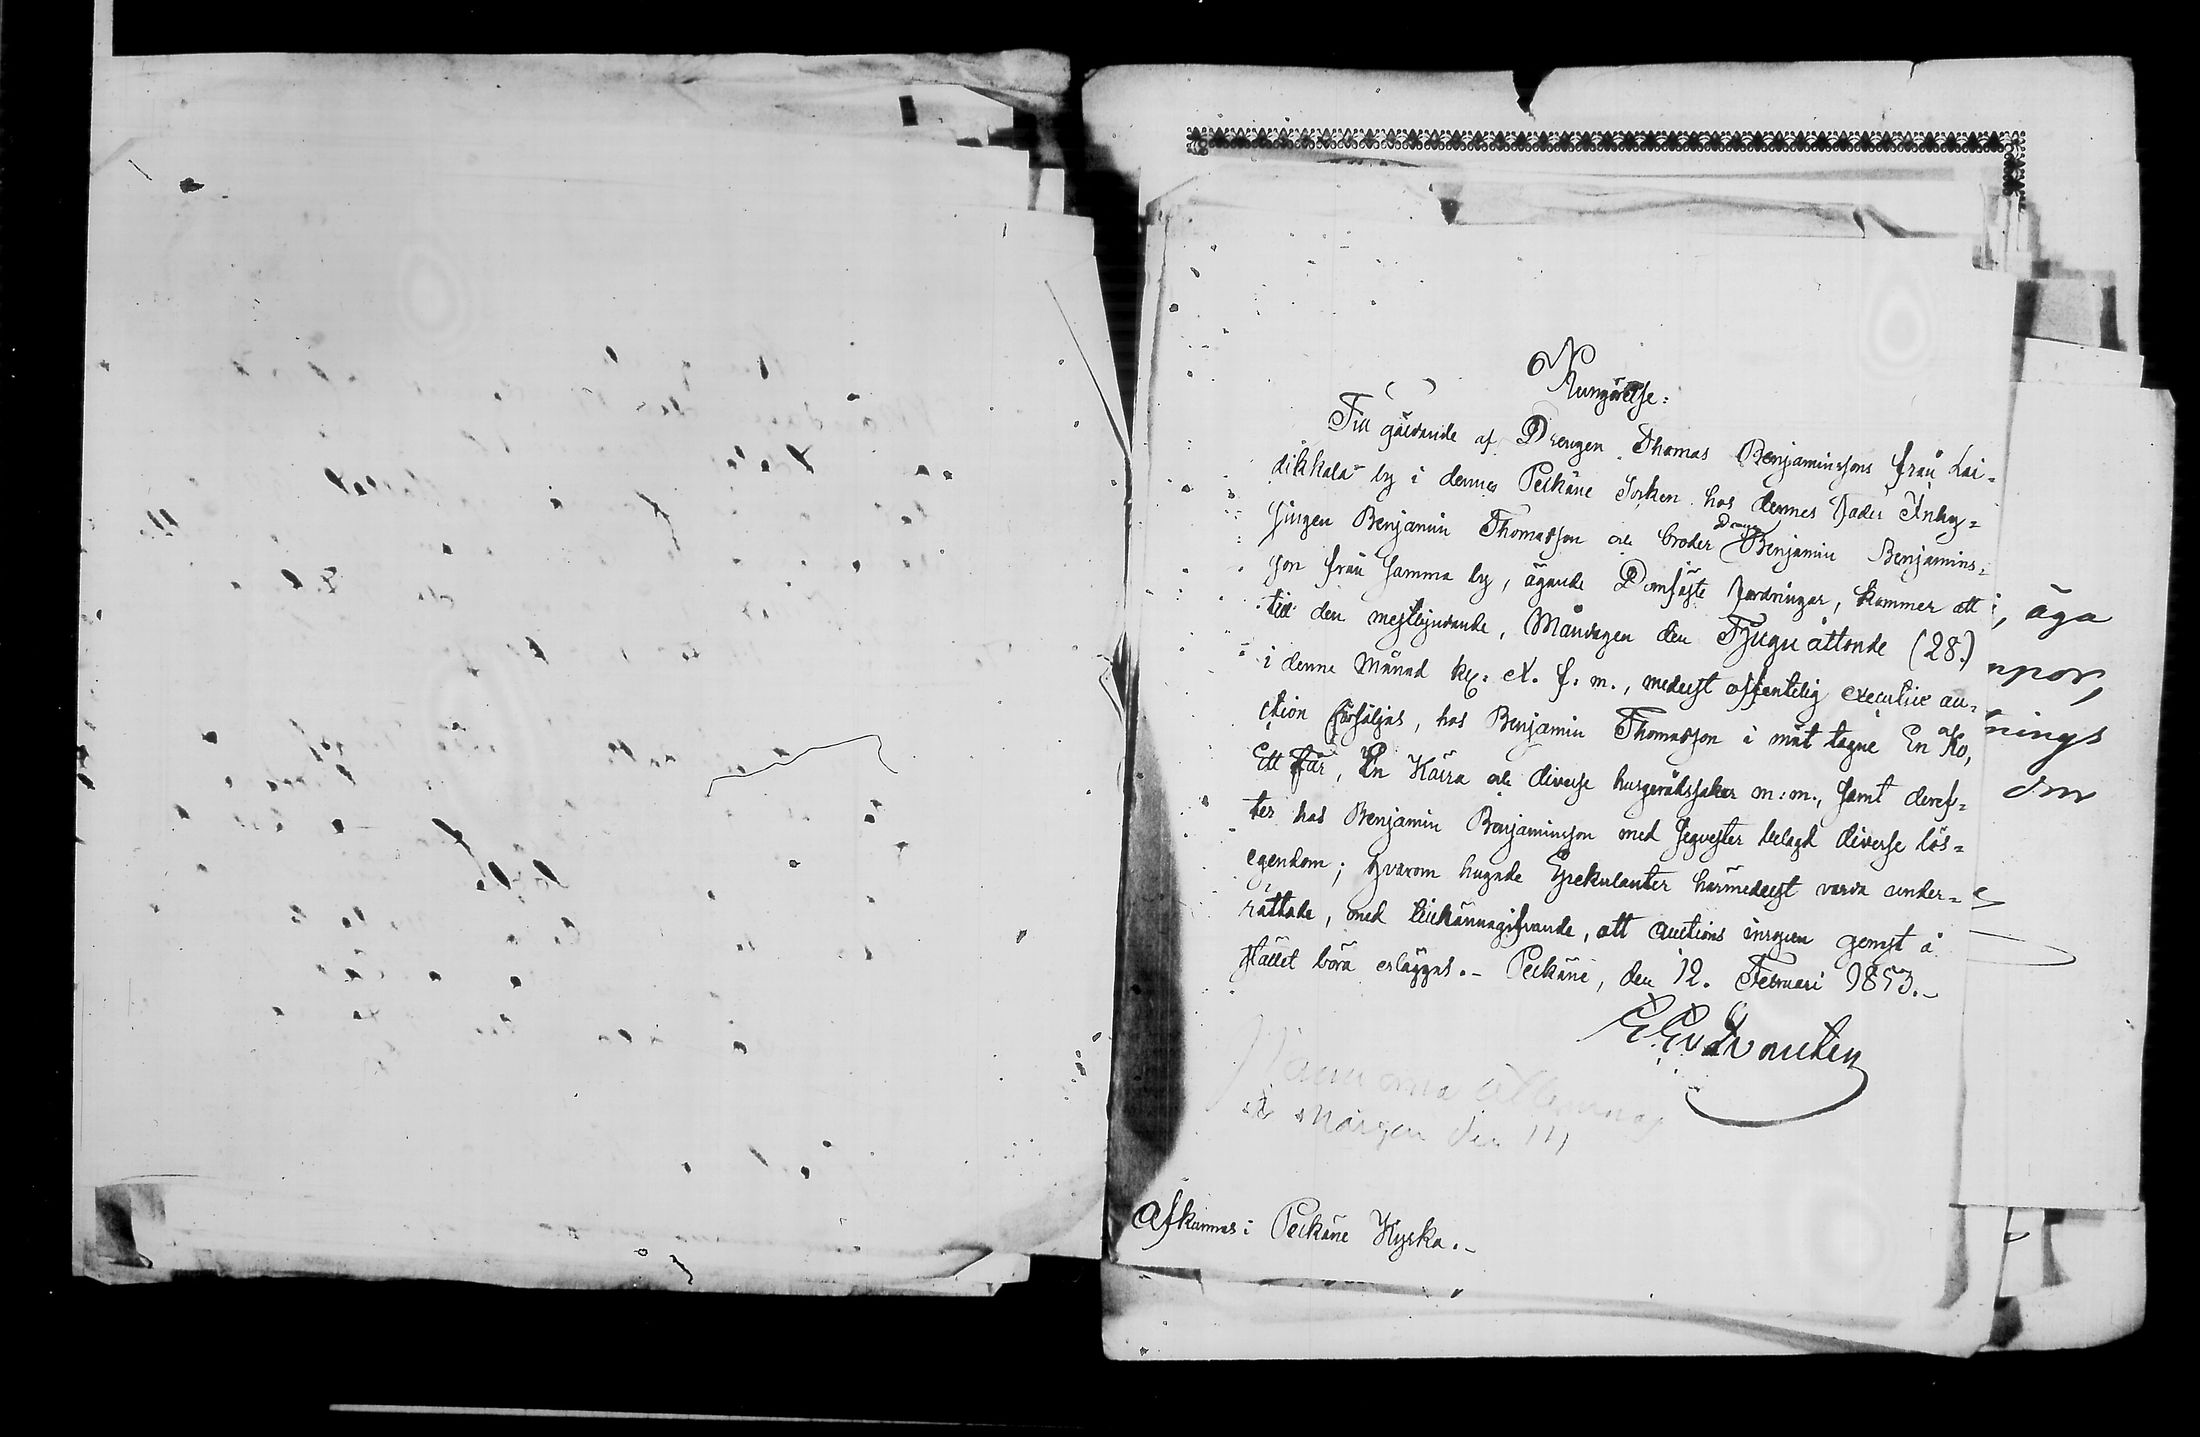 Kungörelse:
Till gäldande af Drengen Thomas Benjaminssons från Lai-
dikkala by i dennes Pelkäne Socken hos dennes fader Inhy-
singen Benjamin Thomasson och broder Drengen Benjamin Benjamins-
son från samma by, ägande Domfäste fordringar, kommer att
till den mestbjudande, Måndagen den Tjuguåttonde (28.)
i denne Månad kl. X. f. m., medelst offentelig executive au-
ction försäljas, hos Benjamin Thomasson i mät tagne En Ko,
Ett Får, En Kärra och diverse husgerådssaker m. m., samt deref-
ter hos Benjamin Benjaminsson med seqvester belagd diverse lös-
egendom; hvarom hugade Spekulanter härmedelst varda under-
rättade, med tillkännagifvande, att auctions inropen genast å
stället böra erläggas. - Pelkäne, den 12. Februari 1853. -
äga
nings
den
Afkunnas i Pelkäne Kyrka. -